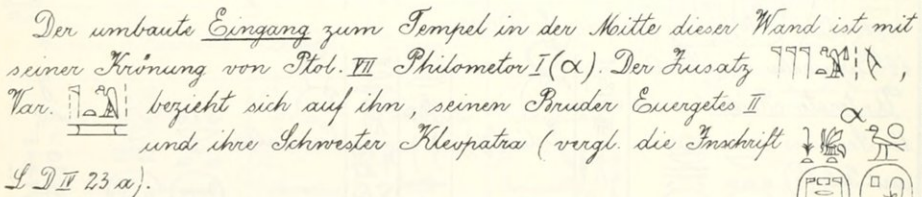 Der umbaute Eingang zum Tempel in der Mitte dieser Wand ist mit
seiner Krönung von Ptol. VII Philometor I (α). Der Zusatz 𓊹𓊹𓊹 ,
Var. bezieht sich auf ihn, seinen Bruder Euergetes II
α
und ihre Schwester Kleopatra (vergl. die Inschrift
L D IV 23 a).